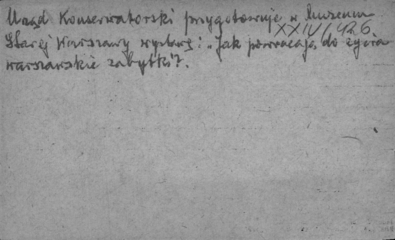 Urząd Konserwatorski przygotowuje w Muzeum
XXIV/926.
Starej Warszawy wystawę: „Jak powracają do życia
warszawskie zabytki".